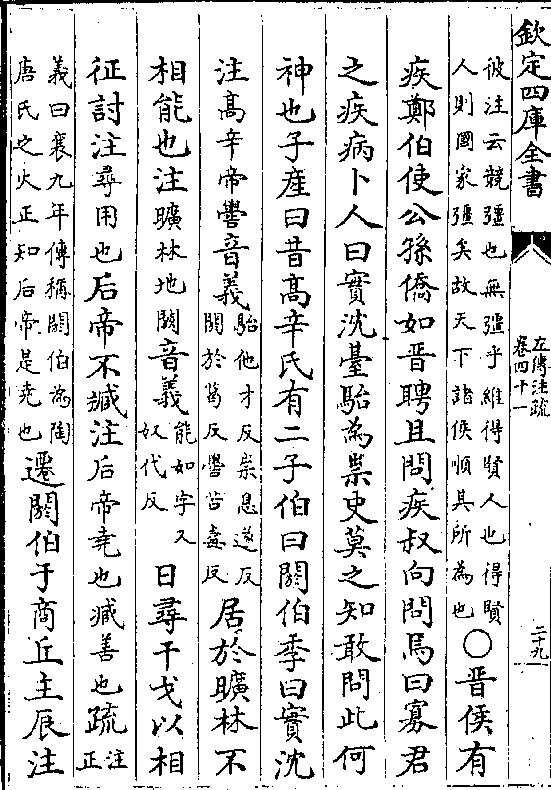 欽定四庫全書
左傳注疏
卷四十一
二十九
彼注云競彊也無彊乎維得賢人也得賢
人則國家彊矣故天下諸侯順其所為也
○晉侯有
疾鄭伯使公孫僑如晉聘且問疾叔向問焉曰寡君
之疾病卜人曰實沈臺駘為祟史莫之知敢問此何
神也子產曰昔髙辛氏有二子伯曰閼伯季曰實沈
注髙辛帝嚳音義
駘他才反祟息遂反
閼於葛反嚳苦毒反
居於曠林不
相能也注曠林地闕音義
能如字又
奴代反
日尋干戈以相
征討注尋用也后帝不臧注后帝堯也臧善也疏
注
正
義曰襄九年傳稱閼伯為陶
唐氏之火正知后帝是堯也
遷閼伯于商丘主辰注